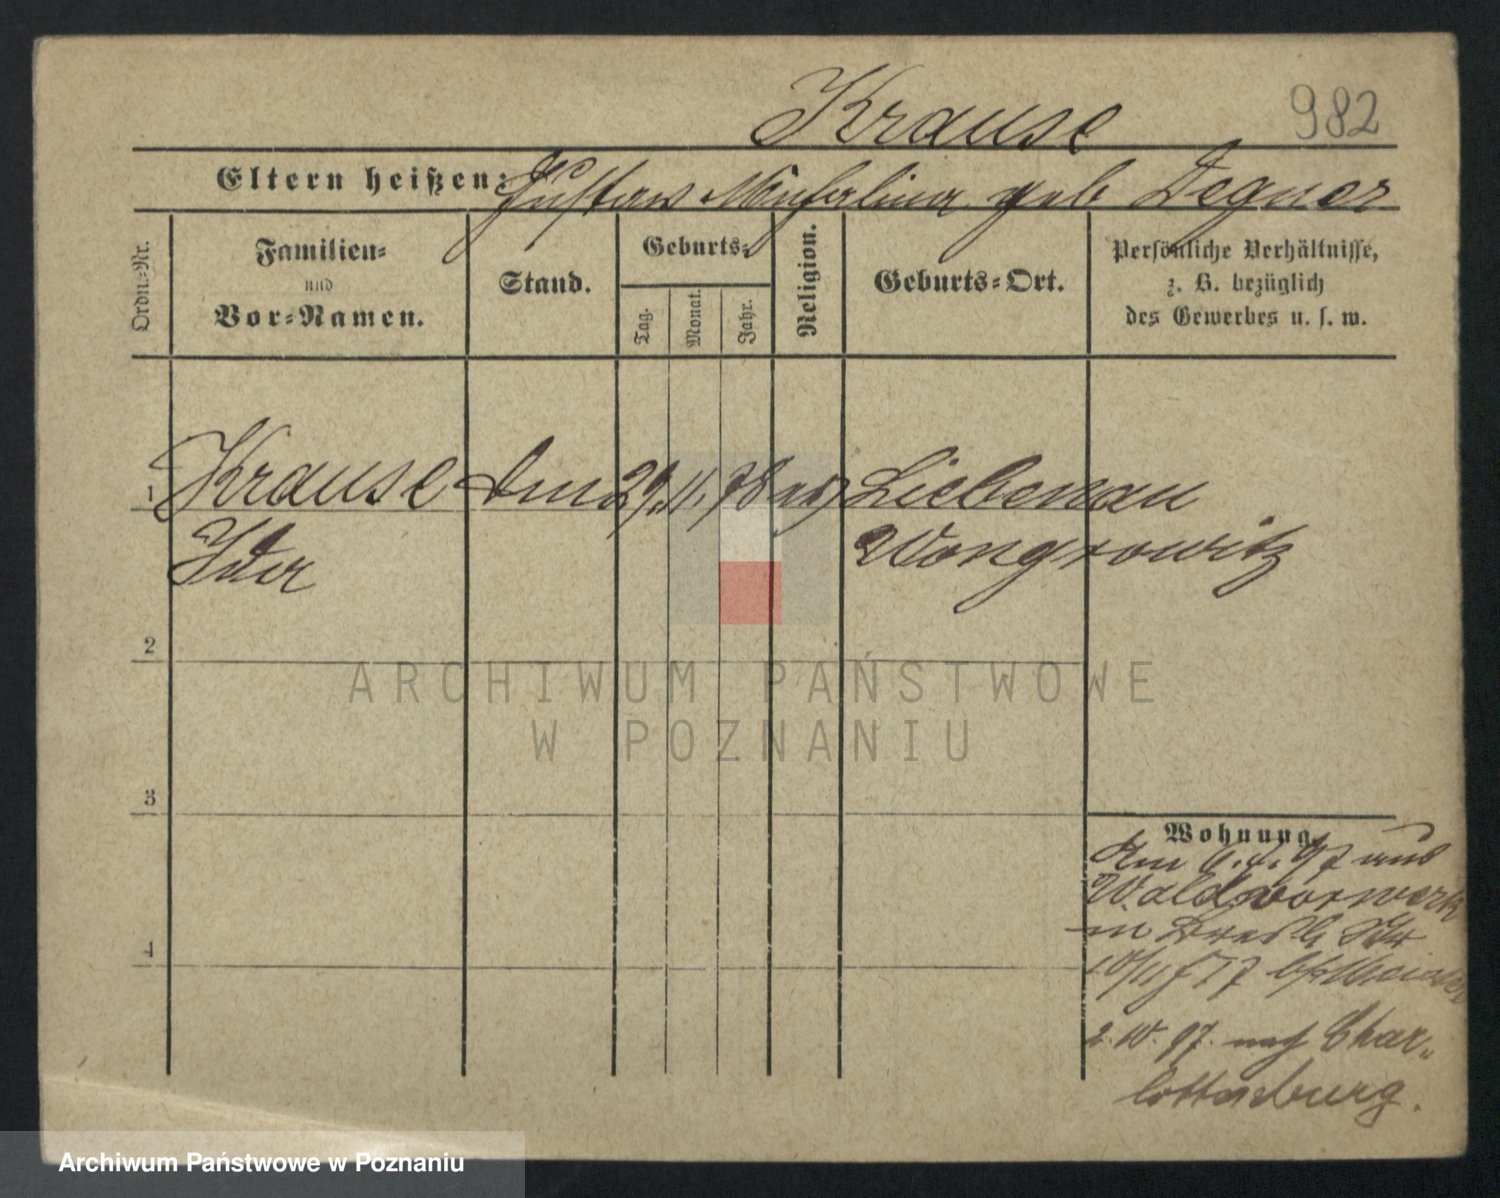 Krause
982
Eltern heißen: Gustav Michalina geb Degner
Ordn.-Nr.
Familien-
und
Vor-Namen.
Stand.
Geburts-
Tag.
Monat.
Jahr.
Religion.
Geburts-Ort.
Persönliche Verhältnisse,
z. B. bezüglich
des Gewerbes u. s. w.
1
Krause
29. 11. 78
Liebenau
Ida
Wongrowitz
2
3
4
Wohnung
Am 6. 4. 97 aus
Waldvorwerk
in
2. 10. 97. nach Char-
lottenburg.
ARCHIWUM PAŃSTWOWE
W POZNANIU
Archiwum Państwowe w Poznaniu